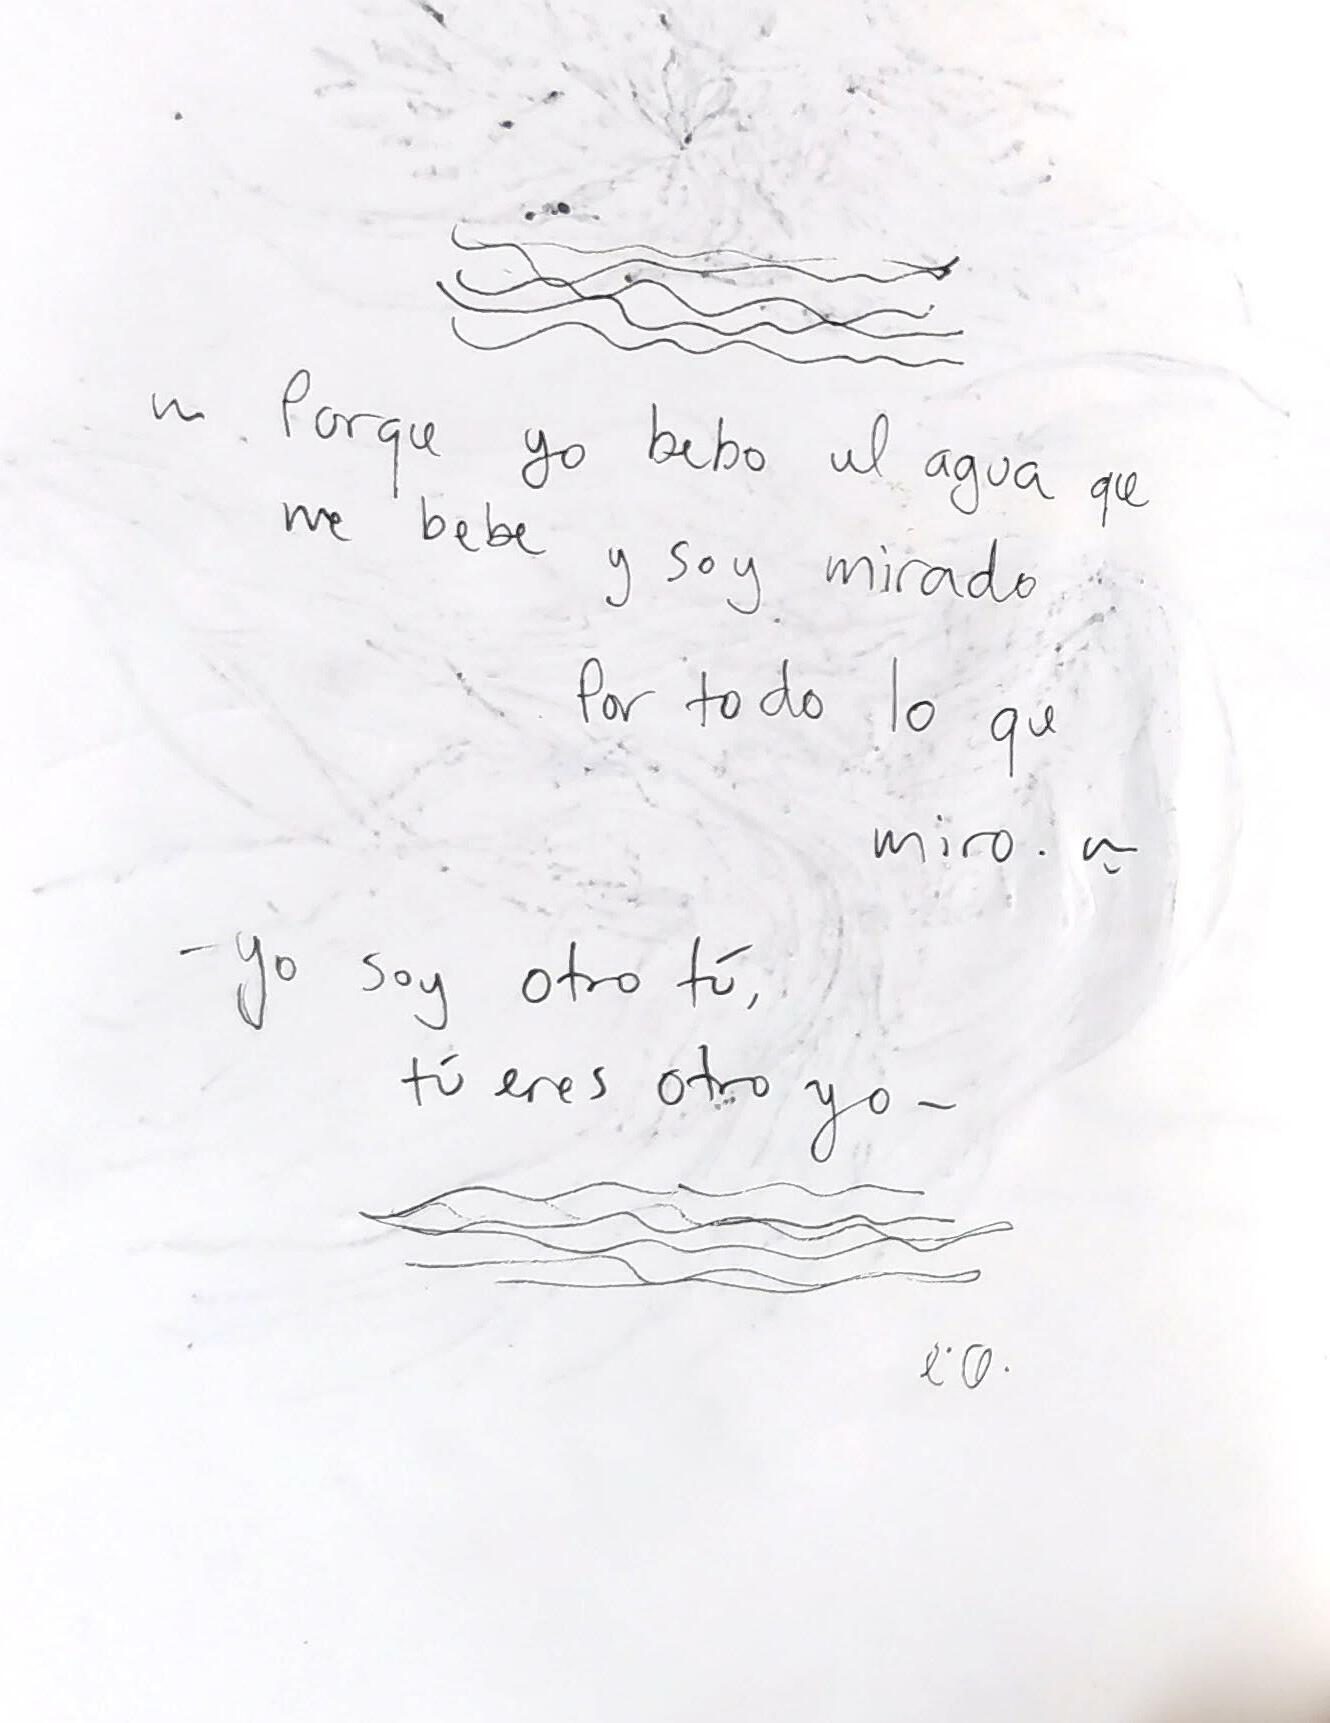 ~ Porque yo bebo el agua que
me bebe y soy mirado
Por todo lo que
miro. ~
- yo soy otro tú,
tú eres otro yo -